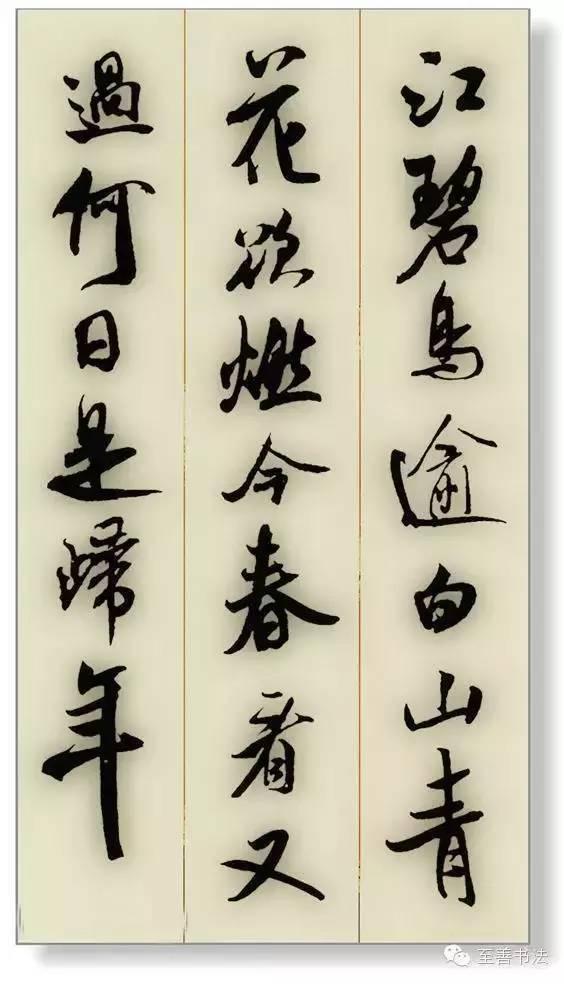 江碧鳥逾白山青
花欲燃今春看又
過何日是歸年
至善书法